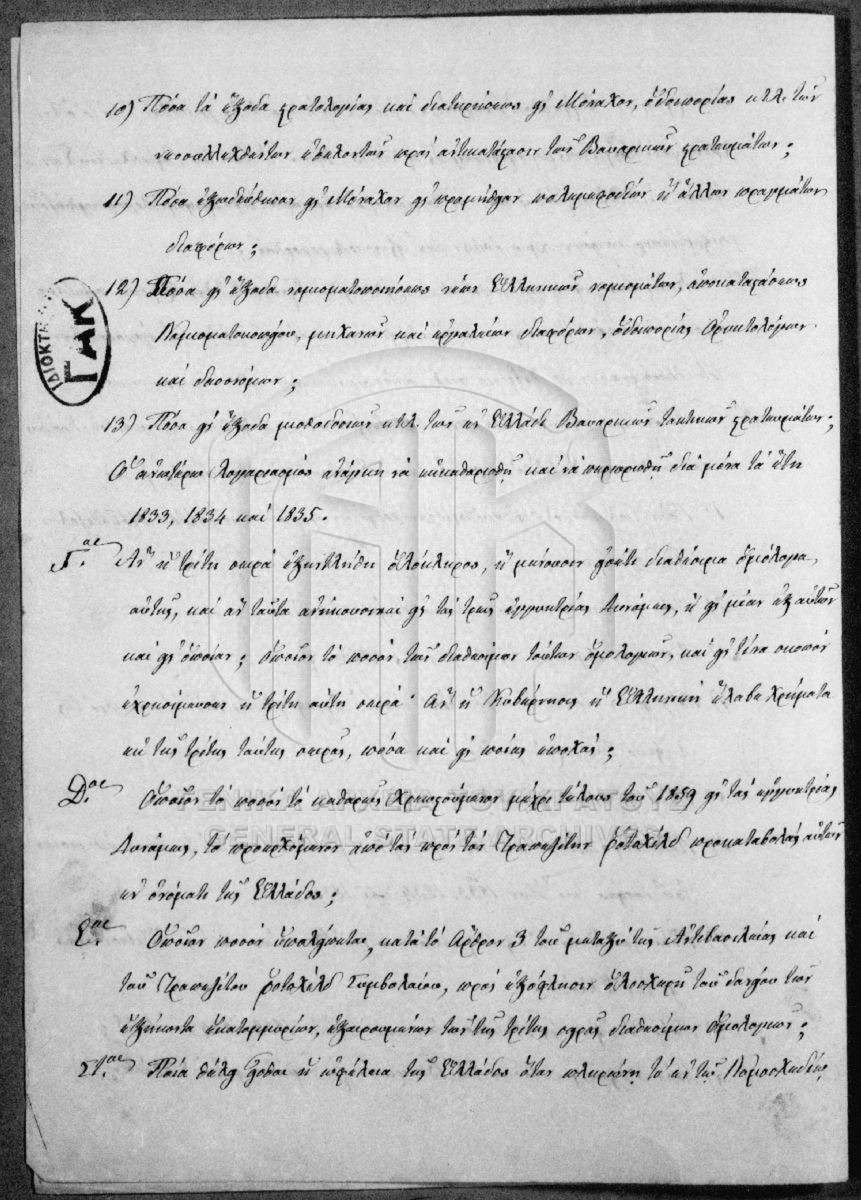 10) Πόσα τὰ ἔξοδα στρατολογίας καὶ διατηρήσεως εἰς Μόναχον, ὁδοιπορίας κτλ. τῶν
νεοσυλλεχθέντων ἐθελοντῶν πρὸς ἀντικατάστασιν τῶν Βαυαρικῶν στρατευμάτων;
11) Πόσα ἐξωδεύθησαν εἰς Μόναχον εἰς προμήθειαν πολεμεφοδίων ἢ ἄλλων πραγμάτων
διαφόρων;
12) Πόσα εἰς ἔξοδα νομισματοποιήσεως νέων Ἑλληνικῶν νομισμάτων, ἀποκαταστάσεως
Νομισματοκοπείου, μηχανῶν καὶ ἐργαλείων διαφόρων, ὁδοιπορίας Ὀρυκτολόγων
καὶ δασονόμων;
13) Πόσα εἰς ἔξοδα μισθοδοσίας κτλ. τῶν ἐν Ἑλλάδι Βαυαρικῶν τακτικῶν στρατευμάτων;
Ὁ ἀνωτέρω λογαριασμὸς ἀνάγκη νὰ ἐκκαθαρισθῇ καὶ νὰ περιορισθῇ διὰ μόνα τὰ ἔτη
1833, 1834 καὶ 1835.
Γ.ον Ἂν ἡ τρίτη σειρὰ ἐξηντλήθη ὁλόκληρος, ἢ μένουσιν εἰσέτι διαθέσιμα ὁμόλογα
αὐτῆς, καὶ ἂν ταῦτα ἀνήκουσι καὶ εἰς τὰς τρεῖς ἐγγυητρίας Δυνάμεις, ἢ εἰς μίαν ἐξ αὐτῶν
καὶ εἰς ὁποίαν; ὁποῖον τὸ ποσὸν τῶν διαθεσίμων τούτων ὁμολογιῶν, καὶ εἰς τίνα σκοπὸν
ἐχρησίμευσεν ἡ τρίτη αὕτη σειρά· Ἂν ἡ Κυβέρνησις ἡ Ἑλληνικὴ ἔλαβε χρήματα
ἐκ τῆς τρίτης ταύτης σειρᾶς, πόσα καὶ εἰς ποίας ἐποχάς;
Δ.ον Ὁποῖον τὸ ποσὸν τὸ καθαρῶς χρεωστούμενον μέχρι τέλους τοῦ 1859 εἰς τὰς ἐγγυητρίας
Δυνάμεις, τὸ προερχόμενον ἀπὸ τὰς πρὸς τὸν Τραπεζίτην Ῥοτσχίλδ προκαταβολὰς αὐτῶν
ἐν ὀνόματι τῆς Ἑλλάδος;
Ε.ον Ὁποῖον ποσὸν ὑπολείπεται, κατὰ τὸ Ἄρθρον 3 τοῦ μεταξὺ τῆς Ἀντιβασιλείας καὶ
τοῦ Τραπεζίτου Ῥοτσχίλδ Συμβολαίου, πρὸς ἐξόφλησιν ὁλοσχερῆ τοῦ δανείου τῶν
ἑξήκοντα ἑκατομμυρίων, ἐξαιρουμένων τῶν τῆς τρίτης σειρᾶς διαθεσίμων ὁμολογιῶν;
ΣΤ.ον Ποία θέλει εἶσθαι ἡ ὠφέλεια τῆς Ἑλλάδος ὅταν πληρώσῃ τὸ ἐν τῷ Νομοσχεδίῳ
ΙΔΙΟΚΤΗ
ΓΑΚ
ΓΕΝΙΚΑ ΑΡΧΕΙΑ ΤΟΥ ΚΡΑΤΟΥΣ
GENERAL STATE ARCHIVES